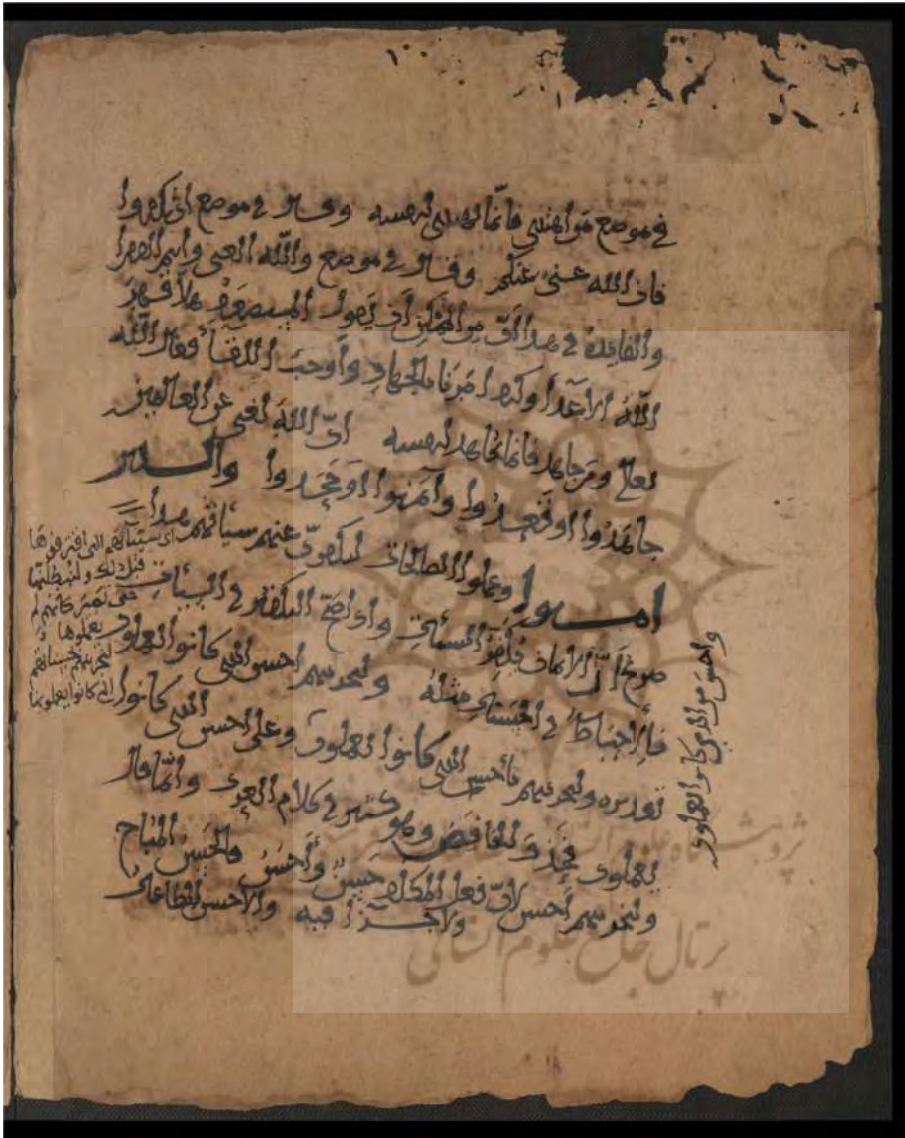 في موضع من اهتدى فانما يهتدي لنفسه وقال في موضع ان تكفروا
فان الله غني عنكم وقال في موضع والله الغني وانتم الفقرا
والفايدة في هذا ان من الممكن ان يقول المستضعف هلا قهر
الله الاعدا وكيف امرنا بالجهاد واوجب اللقا فقال الله
تعالى ومن جاهد فانما يجاهد لنفسه ان الله لغني عن العالمين
جاهدوا او قعدوا وآمنوا او جحدوا والذين
امنوا وعملوا الصالحات لنكفرن عنهم سيئاتهم هذا
صريح ان الايمان يكفر السيئات واذا صح التكفير في السيئات
فالاحباط في الحسنات مثله ولنجزينهم احسن الذي كانوا يعملون
تقديره ولنجزينهم باحسن الذي كانوا يعملون وعلى احسن الذي كانوا
يعملون فحذف الخافض وهو كثير في كلام العرب وانما قال
ولنجزينهم احسن لان فعل المكلف حسن وأحسن فالحسن المباح
ولا جزا فيه والاحسن الطاعات
اي سيئاتهم التي اقترفوها
قبل ذلك ولنبطلنها
حتى تصير كانهم لم
يعملوها
لنجزينهم حسناتهم
التي كانوا يعملونها
واحسن من الذي كانوا يعملون
پژوهشگاه علوم انسانی و مطالعات فرهنگی
پرتال جامع علوم انسانی